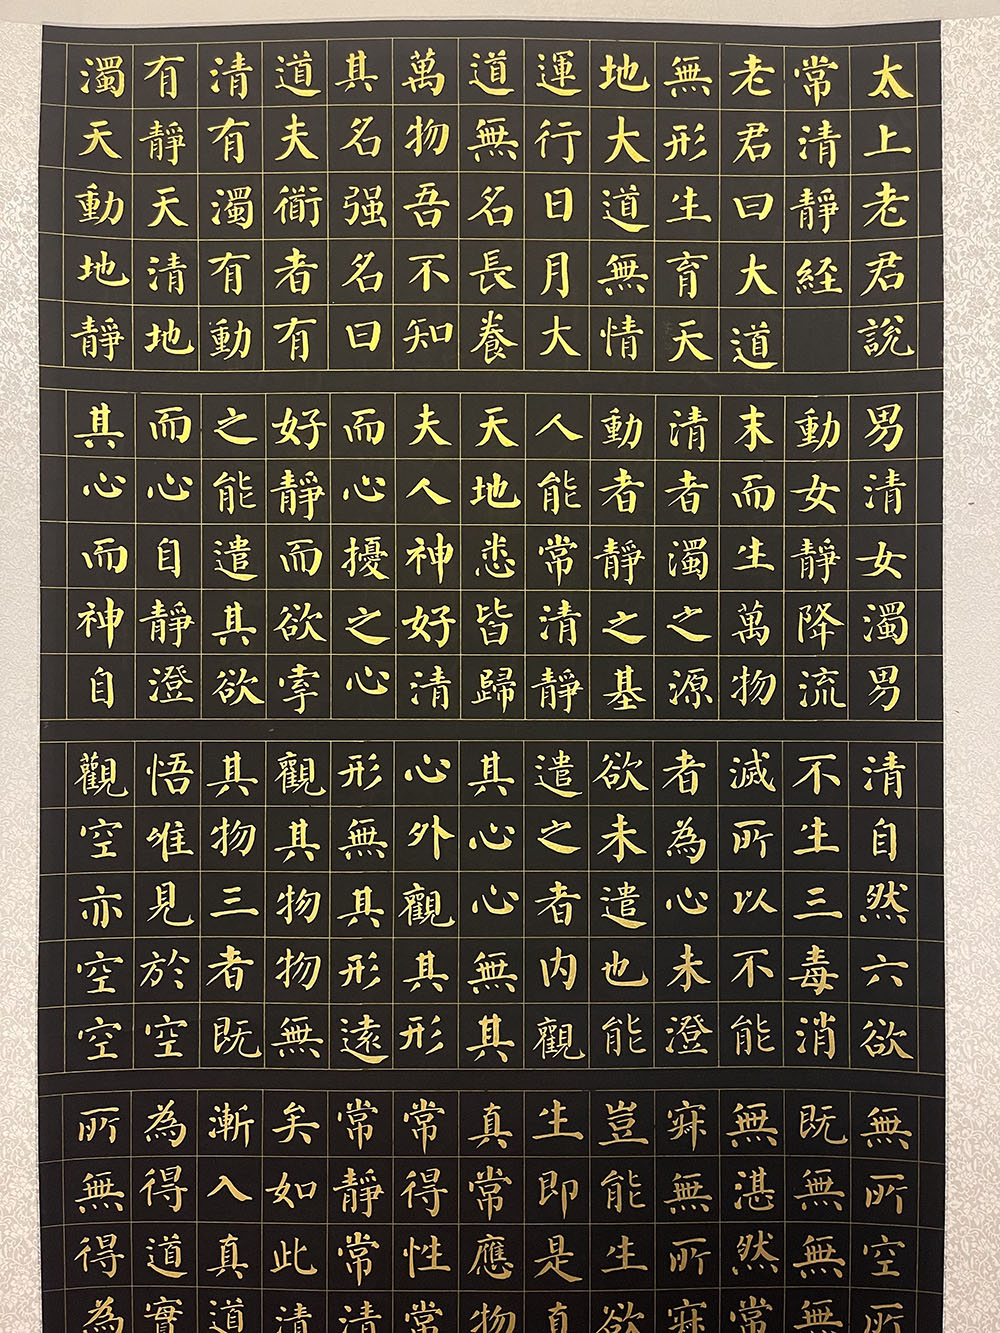 太上老君說
常清靜經
老君曰大道
無形生育天
地大道無情
運行日月大
道無名長養
萬物吾不知
其名强名曰
道夫衜者有
清有濁有動
有靜天清地
濁天動地靜
男清女濁男
動女靜降流
末而生萬物
清者濁之源
動者靜之基
人能常清靜
天地悉皆歸
夫人神好清
而心擾之心
好靜而欲牽
之能遣其欲
而心自靜澄
其心而神自
清自然六欲
不生三毒消
滅所以不能
者為心未澄
欲未遣也能
遣之者内觀
其心心無其
心外觀其形
形無其形遠
觀其物物無
其物三者既
悟唯見於空
觀空亦空空
無所空所
既無無無
無湛然常
寂無所寂
豈能生欲
生即是真
真常應物
常得性常
常靜常清
矣如此清
漸入真道
為得道實
所無得為